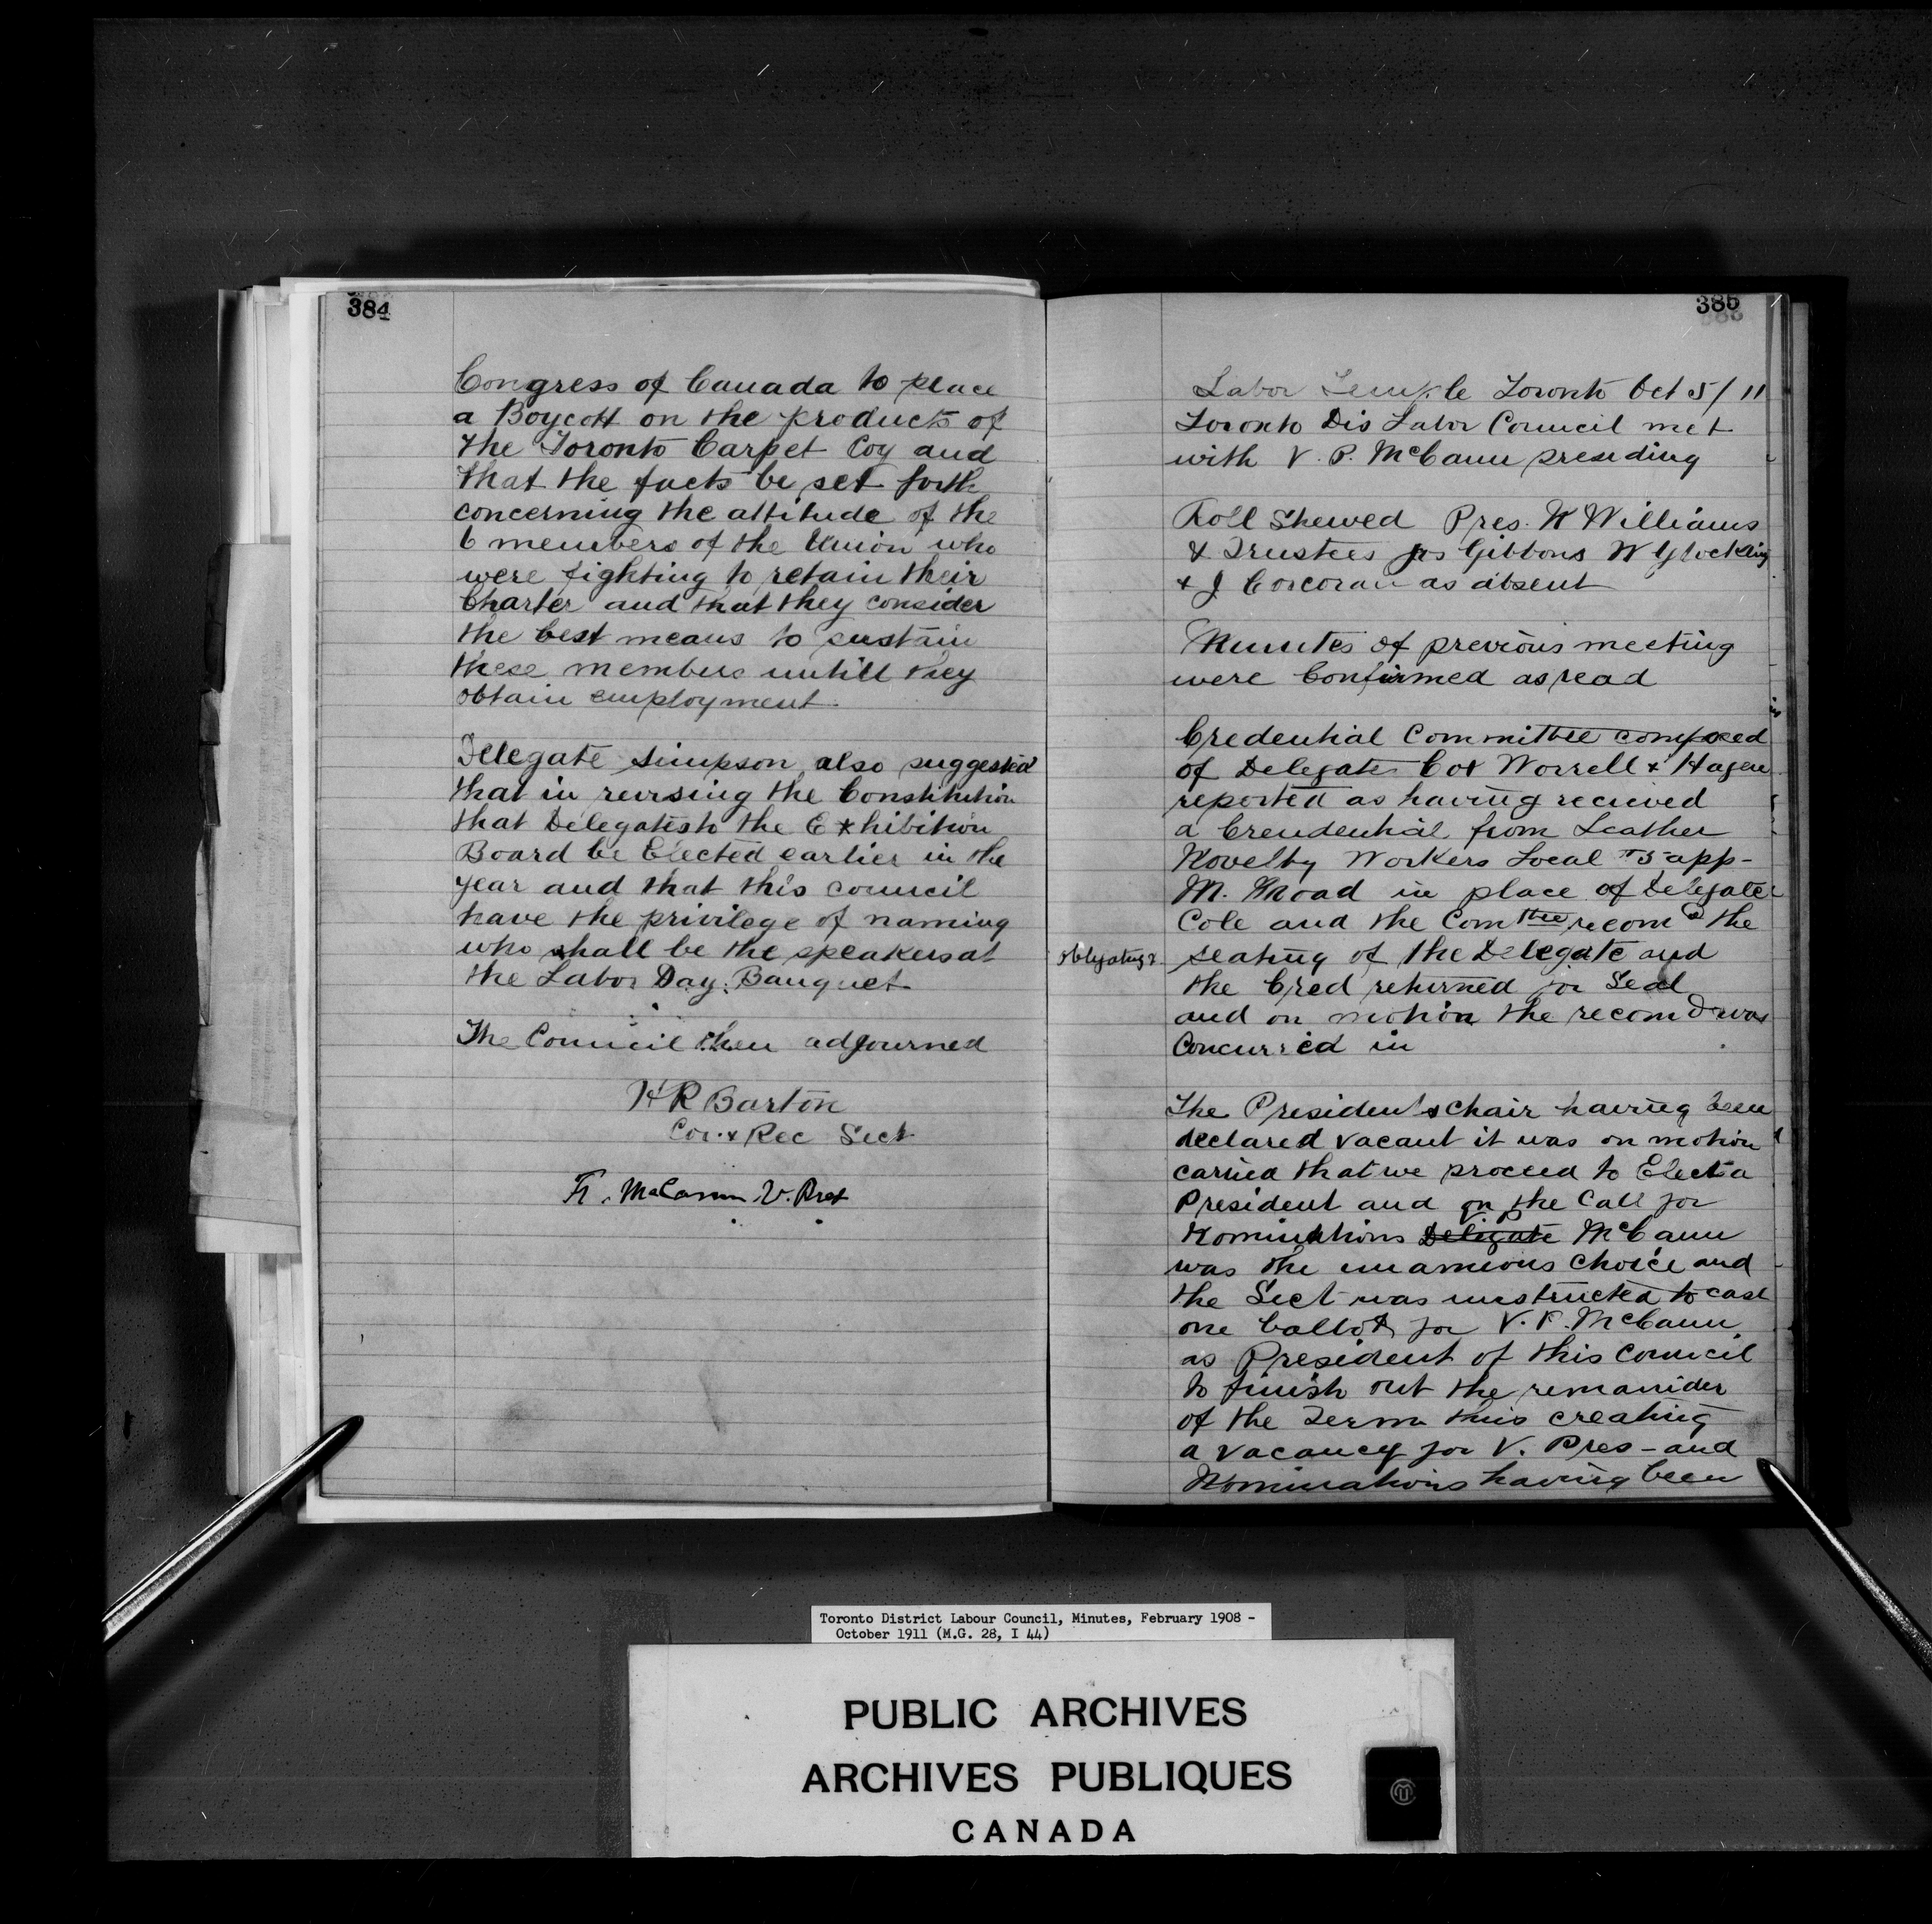 384
Congress of Canada to place
a Boycott on the products of
the Toronto Carpet Coy and
that the facts be set forth
concerning the attitude of the
6 members of the Union who
were fighting to retain their
Charter and that they consider
the best means to sustain
these members untill they
obtain employment.
Delegate Simpson also suggested
that in revising the Constitution
that Delegates to the Exhibition
Board be Elected earlier in the
year and that this council
have the privilege of naming
who shall be the speakers at
the Labor Day Banquet
The Council then adjourned
H R Barton
Cor. & Rec Sect
McCann V. Pres
385
Labor Temple Toronto Oct 5/11
Toronto Dis Labor Council met
with V. P. McCann presiding
Roll Shewed Pres. W Williams
& Trustees Jas Gibbons W Glockling
& J Corcoran as absent
Minutes of previous meeting
were Confirmed as read
Credential Committee composed
of Delegates Cox Worrell & Hagen
reported as having recieved
a Creudential from Leather
Novelty Workers Local #5 app-
M. in place of Delegate
Cole and the Comttee recomd the
obligating & seating of the Delegate and
the Cred returned for Seal
and on motion the recomd was
Concurred in
The Presidents chair having been
declared vacant it was on motion
carried that we proceed to Elect a
President and on the Call for
V. P.
Nominations Delegate McCann
was the unamious choice and
the Sect was instructed to cast
one ballot for V. P. McCann
as President of this Council
to finish out the remainder
of the Term thus creating
a vacancy for V. Pres - and
Nominations having been
Toronto District Labour Council, Minutes, February 1908 -
October 1911 (M.G. 28, I 44)
PUBLIC ARCHIVES
ARCHIVES PUBLIQUES
CANADA